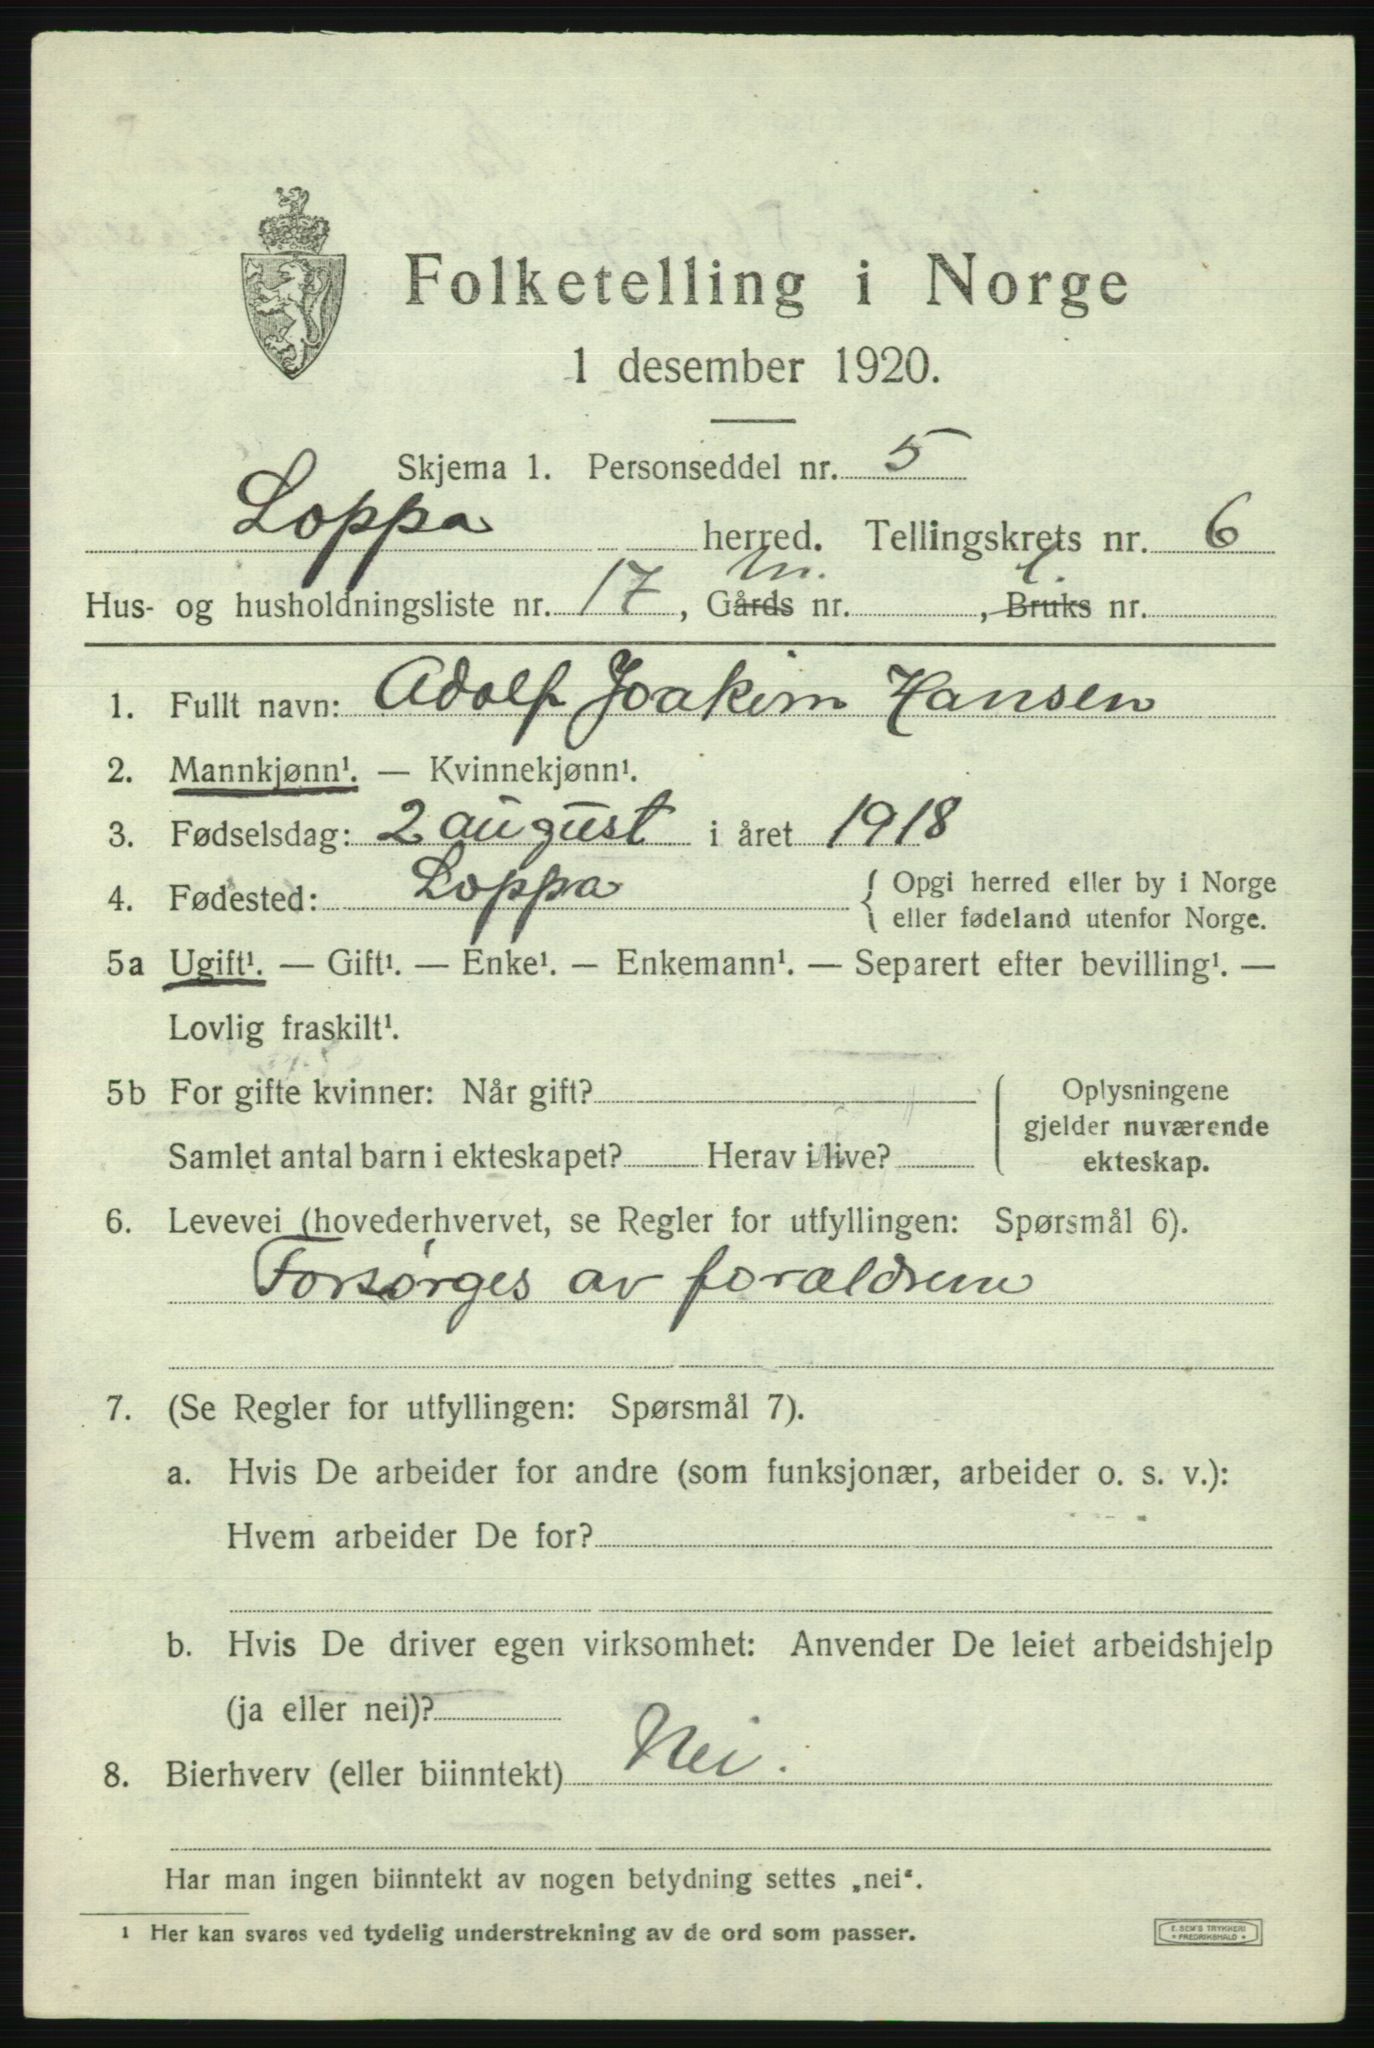 Folketelling i Norge
1 desember 1920.
Skjema 1. Personseddel nr. 5
Loppa herred. Tellingskrets nr. 6
m. l.
Hus- og husholdningsliste nr. 17, Gårds nr. , Bruks nr.
1. Fullt navn: Adolf Joakim Hansen
2. Mannkjønn¹. — Kvinnekjønn¹.
3. Fødselsdag: 2 august i året 1918
4. Fødested: Loppa { Opgi herred eller by i Norge
eller fødeland utenfor Norge.
5a Ugift¹. — Gift¹. — Enke¹. — Enkemann¹. — Separert efter bevilling¹. —
Lovlig fraskilt¹.
5b For gifte kvinner: Når gift?
Samlet antal barn i ekteskapet? Herav i live?
Oplysningene
gjelder nuværende
ekteskap.
6. Levevei (hovederhvervet, se Regler for utfyllingen: Spørsmål 6).
Forsørges av forældrene
7. (Se Regler for utfyllingen: Spørsmål 7).
a. Hvis De arbeider for andre (som funksjonær, arbeider o. s. v.):
Hvem arbeider De for?
b. Hvis De driver egen virksomhet: Anvender De leiet arbeidshjelp
(ja eller nei)?
8. Bierhverv (eller biinntekt) Nei.
Har man ingen biinntekt av nogen betydning settes „nei“.
¹ Her kan svares ved tydelig understrekning av de ord som passer.
E. SEM'S TRYKKERI
* FREDRIKSHALD *